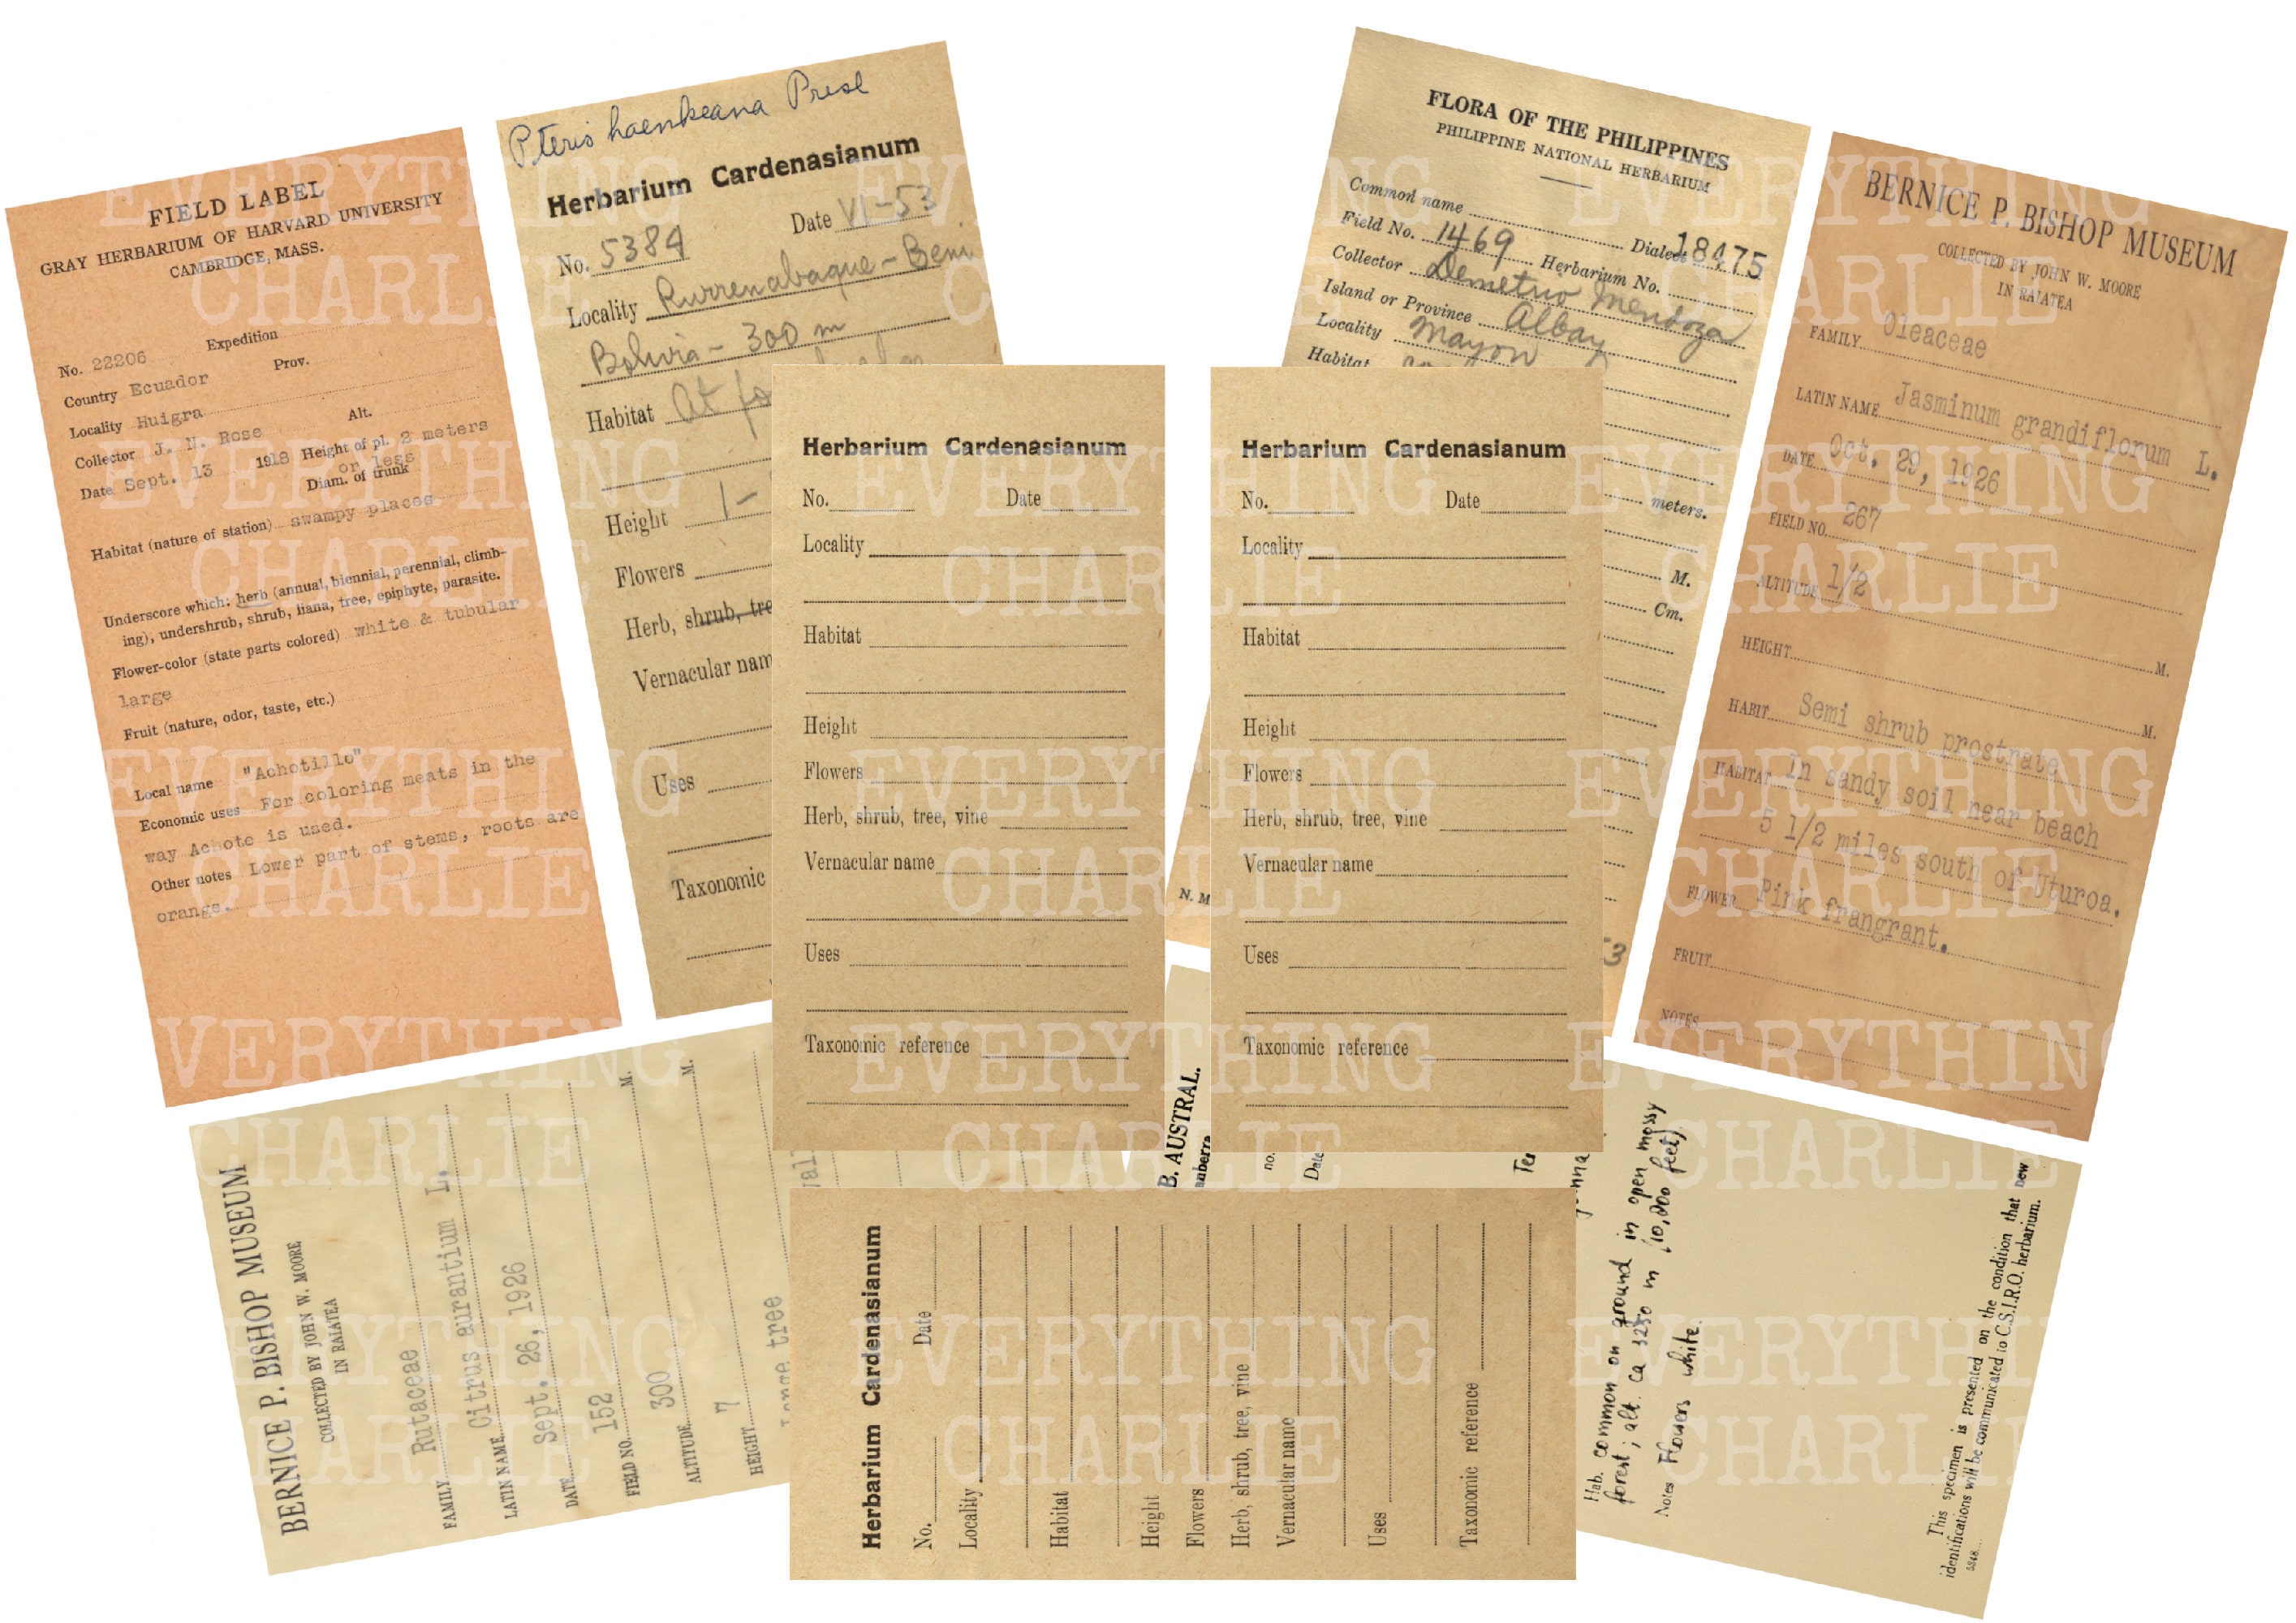 FIELD LABEL
GRAY HERBARIUM OF HARVARD UNIVERSITY
CAMBRIDGE, MASS.
No. 22206 Expedition
Country Ecuador Prov.
Locality Huigra
Collector J. N. Rose Alt.
Date Sept. 13 1918 Height of pl. 2 meters
or less
Diam. of trunk
Habitat (nature of station) swampy places
Underscore which: herb (annual, biennial, perennial, climb-
ing), undershrub, shrub, liana, tree, epiphyte, parasite.
Flower-color (state parts colored) white & tubular
large
Fruit (nature, odor, taste, etc.)
Local name "Achotillo"
Economic uses For coloring meats in the
way Achote is used.
Other notes Lower part of stems, roots are
orange.
Pteris haenkeana Presl
Herbarium Cardenasianum
No. 5384 Date VI-53
Locality Rurrenabaque - Beni
Bolivia - 300 m
Habitat At
Height 1-
Flowers
Herb, shrub, tre
Vernacular nam
Uses
Taxonomic
Herbarium Cardenasianum
No. Date
Locality
Habitat
Height
Flowers
Herb, shrub, tree, vine
Vernacular name
Uses
Taxonomic reference
Herbarium Cardenasianum
No. Date
Locality
Habitat
Height
Flowers
Herb, shrub, tree, vine
Vernacular name
Uses
Taxonomic reference
FLORA OF THE PHILIPPINES
PHILIPPINE NATIONAL HERBARIUM
Common name
Dialect
Field No. 1469 Herbarium No. 18475
Collector Demetrio Mendoza
Island or Province Albay
Locality Mayon
Habitat
meters.
M.
Cm.
N. M
3
BERNICE P. BISHOP MUSEUM
COLLECTED BY JOHN W. MOORE
IN RAIATEA
FAMILY Oleaceae
LATIN NAME Jasminum grandiflorum L.
DATE Oct. 29, 1926
FIELD NO. 267
ALTITUDE 1/2
M.
HEIGHT
M.
HABIT Semi shrub prostrate
HABITAT In sandy soil near beach
5 1/2 miles south of Uturoa.
FLOWER Pink frangrant.
FRUIT
NOTES
BERNICE P. BISHOP MUSEUM
COLLECTED BY JOHN W. MOORE
IN RAIATEA
FAMILY Rutaceae
LATIN NAME Citrus aurantium L.
DATE Sept. 26, 1926
FIELD NO. 152
ALTITUDE 300 M.
HEIGHT 7 M.
tree
Herbarium Cardenasianum
No. Date
Locality
Habitat
Height
Flowers
Herb, shrub, tree, vine
Vernacular name
Uses
Taxonomic reference
B. AUSTRAL.
anberra
no.
Date
Hab. common on ground in open mossy
forest; alt. ca 3250 m (10,200 feet)
Notes Flowers white.
This specimen is presented on the condition that new
identifications will be communicated to C.S.I.R.O. herbarium.
EVERYTHING
CHARLIE